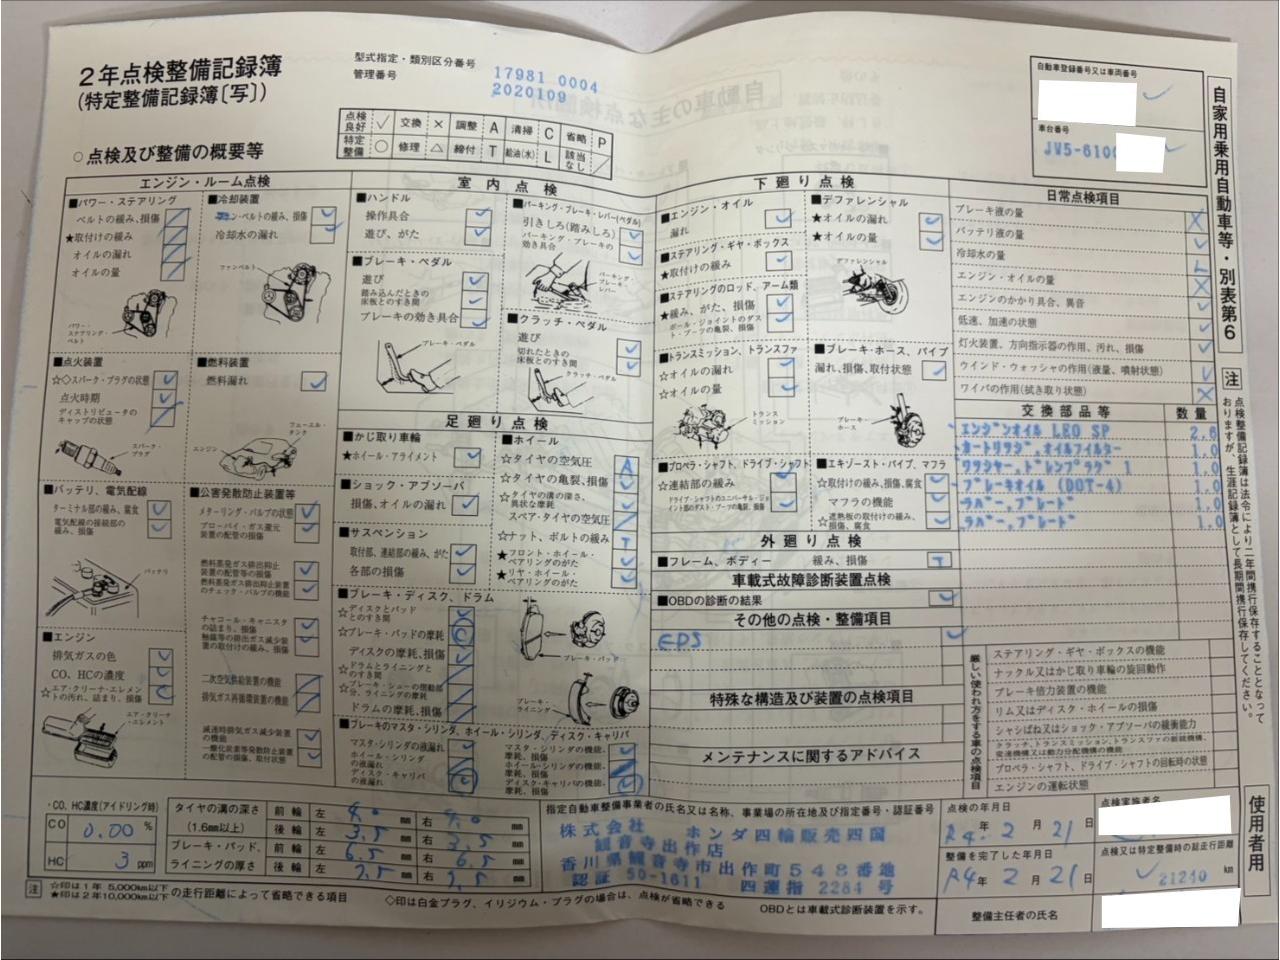 2年点検整備記録簿
(特定整備記録簿〔写〕)
型式指定・類別区分番号
管理番号
17981 0004
2020109
点検良好 ✓ 交換 × 調整 A 清掃 C 省略 P
特定整備 ○ 修理 △ 締付 T 給油(水) L 該当なし /
自動車登録番号又は車両番号
車台番号
JW5-610
自家用乗用自動車等・別表第6
注 点検整備記録簿は法令により二年間携行保存することとなっておりますが、生涯記録簿として長期間携行保存してください。
使用者用
○点検及び整備の概要等
エンジン・ルーム点検
■パワー・ステアリング
ベルトの緩み、損傷
★取付けの緩み
オイルの漏れ
オイルの量
パワー・ステアリング・ベルト
■点火装置
☆◇スパーク・プラグの状態
点火時期
ディストリビュータのキャップの状態
スパーク・プラグ
■バッテリ、電気配線
ターミナル部の緩み、腐食
電気配線の接続部の緩み、損傷
バッテリ
■エンジン
排気ガスの色
CO、HCの濃度
☆エア・クリーナ・エレメントの汚れ、詰まり、損傷
エア・クリーナ・エレメント
■冷却装置
ファン・ベルトの緩み、損傷
冷却水の漏れ
ファンベルト
■燃料装置
燃料漏れ
フューエル・タンク
エンジン
■公害発散防止装置等
メターリング・バルブの状態
ブローバイ・ガス還元装置の配管の損傷
燃料蒸発ガス排出抑止装置の配管等の損傷
燃料蒸発ガス排出抑止装置のチェック・バルブの機能
チャコール・キャニスタの詰まり、損傷
触媒等の排出ガス減少装置の取付けの緩み、損傷
二次空気供給装置の機能
排気ガス再循環装置の機能
減速時排気ガス減少装置の機能
一酸化炭素等発散防止装置の配管の損傷、取付状態
室内点検
■ハンドル
操作具合
遊び、がた
■ブレーキ・ペダル
遊び
踏み込んだときの床板とのすき間
ブレーキの効き具合
ブレーキ・ペダル
■パーキング・ブレーキ・レバー(ペダル)
引きしろ(踏みしろ)
パーキング・ブレーキの効き具合
パーキング・ブレーキ・レバー
■クラッチ・ペダル
遊び
切れたときの床板とのすき間
クラッチ・ペダル
足廻り点検
■かじ取り車輪
★ホイール・アライメント
■ショック・アブソーバ
損傷、オイルの漏れ
■サスペンション
取付部、連結部の緩み、がた
各部の損傷
■ホイール
☆タイヤの空気圧 A
☆タイヤの亀裂、損傷
☆タイヤの溝の深さ、異状な摩耗
スペア・タイヤの空気圧
☆ナット、ボルトの緩み T
★フロント・ホイール・ベアリングのがた
★リヤ・ホイール・ベアリングのがた
■ブレーキ・ディスク、ドラム
☆ディスクとパッドとのすき間
☆ブレーキ・パッドの摩耗
ディスクの摩耗、損傷
☆ドラムとライニングとのすき間
☆ブレーキ・シューの摺動部分、ライニングの摩耗
ドラムの摩耗、損傷
ブレーキ・パッド
ブレーキ・ライニング
■ブレーキのマスタ・シリンダ、ホイール・シリンダ、ディスク・キャリパ
マスタ・シリンダの液漏れ
ホイール・シリンダの液漏れ
ディスク・キャリパの液漏れ
マスタ・シリンダの機能、摩耗、損傷
ホイール・シリンダの機能、摩耗、損傷
ディスク・キャリパの機能、摩耗、損傷
下廻り点検
■エンジン・オイル
漏れ
■ステアリング・ギヤ・ボックス
★取付けの緩み
■ステアリングのロッド、アーム類
★緩み、がた、損傷
ボール・ジョイントのダスト・ブーツの亀裂、損傷
■トランスミッション、トランスファ
☆オイルの漏れ
☆オイルの量
トランスミッション
■プロペラ・シャフト、ドライブ・シャフト
☆連結部の緩み
ドライブ・シャフトのユニバーサル・ジョイント部のダスト・ブーツの亀裂、損傷
■デファレンシャル
★オイルの漏れ
★オイルの量
デファレンシャル
■ブレーキ・ホース、パイプ
漏れ、損傷、取付状態
ブレーキ・ホース
■エキゾースト・パイプ、マフラ
☆取付けの緩み、損傷、腐食
マフラの機能
☆遮熱板の取付けの緩み、損傷、腐食
外廻り点検
■フレーム、ボディー 緩み、損傷 T
車載式故障診断装置点検
■OBDの診断の結果
その他の点検・整備項目
EPS
特殊な構造及び装置の点検項目
メンテナンスに関するアドバイス
日常点検項目
ブレーキ液の量 ×
バッテリ液の量
冷却水の量 L
エンジン・オイルの量 ×
エンジンのかかり具合、異音
低速、加速の状態
灯火装置、方向指示器の作用、汚れ、損傷
ウインド・ウォッシャの作用(液量、噴射状態)
ワイパの作用(拭き取り状態) ×
交換部品等 数量
エンジンオイル LEO SP 2.6
カートリッジ,オイルフィルター 1.0
ワッシャー,ドレンプラグ 1 1.0
ブレーキオイル (DOT-4) 1.0
ラバー,ブレード 1.0
ラバー,ブレード 1.0
厳しい使われ方をする車の点検項目
ステアリング・ギヤ・ボックスの機能
ナックル又はかじ取り車輪の旋回動作
ブレーキ倍力装置の機能
リム又はディスク・ホイールの損傷
シャシばね又はショック・アブソーバの緩衝能力
クラッチ、トランスミッション、トランスファの断続機構、変速機構又は動力分配機構の機能
プロペラ・シャフト、ドライブ・シャフトの回転時の状態
エンジンの運転状態
・CO、HC濃度(アイドリング時)
CO 0.00 %
HC 3 ppm
タイヤの溝の深さ (1.6mm以上)
前輪 左 mm 右 mm
後輪 左 3.5 mm 右 3.5 mm
ブレーキ・パッド、ライニングの厚さ
前輪 左 6.5 mm 右 6.5 mm
後輪 左 mm 右 mm
指定自動車整備事業者の氏名又は名称、事業場の所在地及び指定番号・認証番号
株式会社 ホンダ四輪販売四国
観音寺出作店
香川県観音寺市出作町548番地
認証 50-1611 四運指 2284 号
点検の年月日
R4年 2月 21日
整備を完了した年月日
R4年 2月 21日
点検実施者名
点検又は特定整備時の総走行距離
21210 km
整備主任者の氏名
注 ☆印は1年 5,000km以下 ★印は2年10,000km以下 の走行距離によって省略できる項目
◇印は白金プラグ、イリジウム・プラグの場合は、点検が省略できる
OBDとは車載式診断装置を示す。